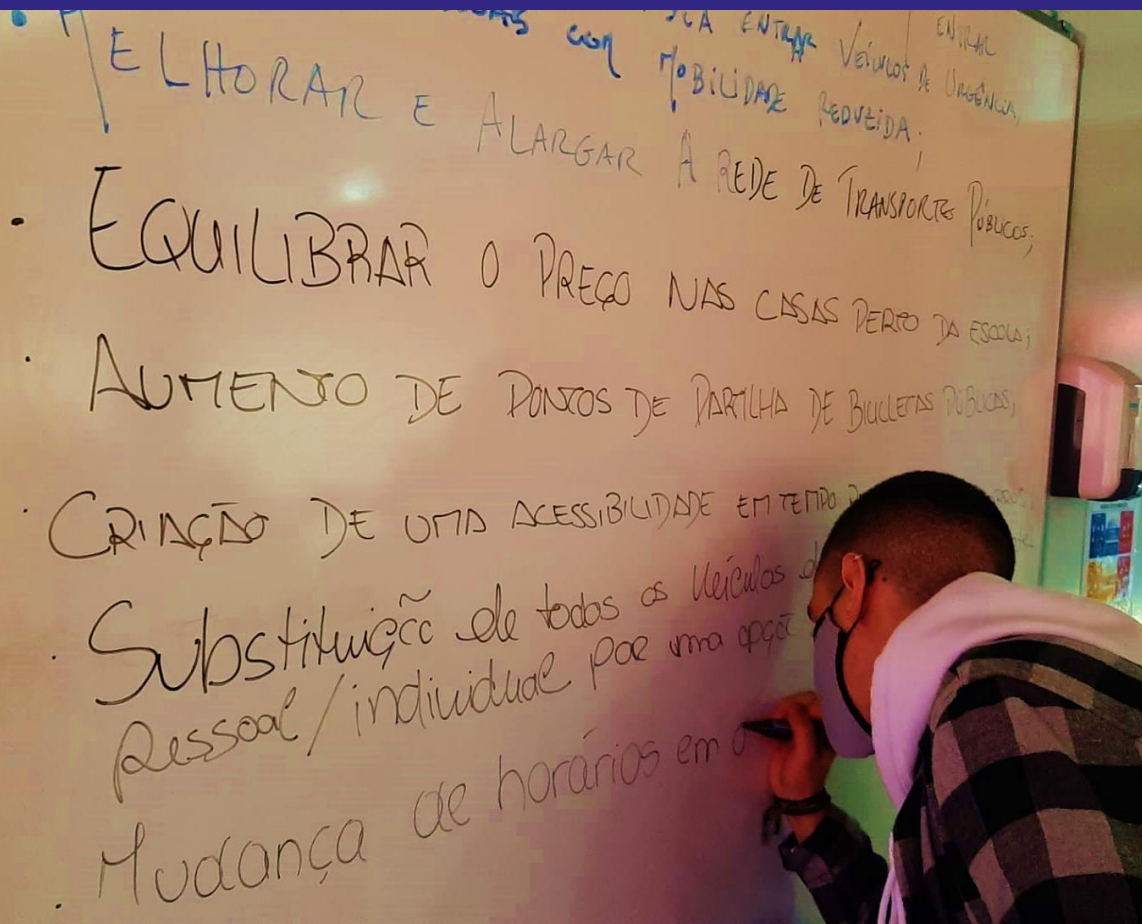 ENTRAR
SÓ ENTRAR VEÍCULOS DE URGÊNCIA,
COM MOBILIDADE REDUZIDA;
MELHORAR E ALARGAR A REDE DE TRANSPORTES PÚBLICOS;
· EQUILIBRAR O PREÇO NAS CASAS PERTO DA ESCOLA;
· AUMENTO DE PONTOS DE PARTILHA DE BICICLETAS PÚBLICAS;
· CRIAÇÃO DE UMA ACESSIBILIDADE EM TEMPO
· Substituição de todos os Veículos
pessoal/individual por uma opção
· Mudança de horários em